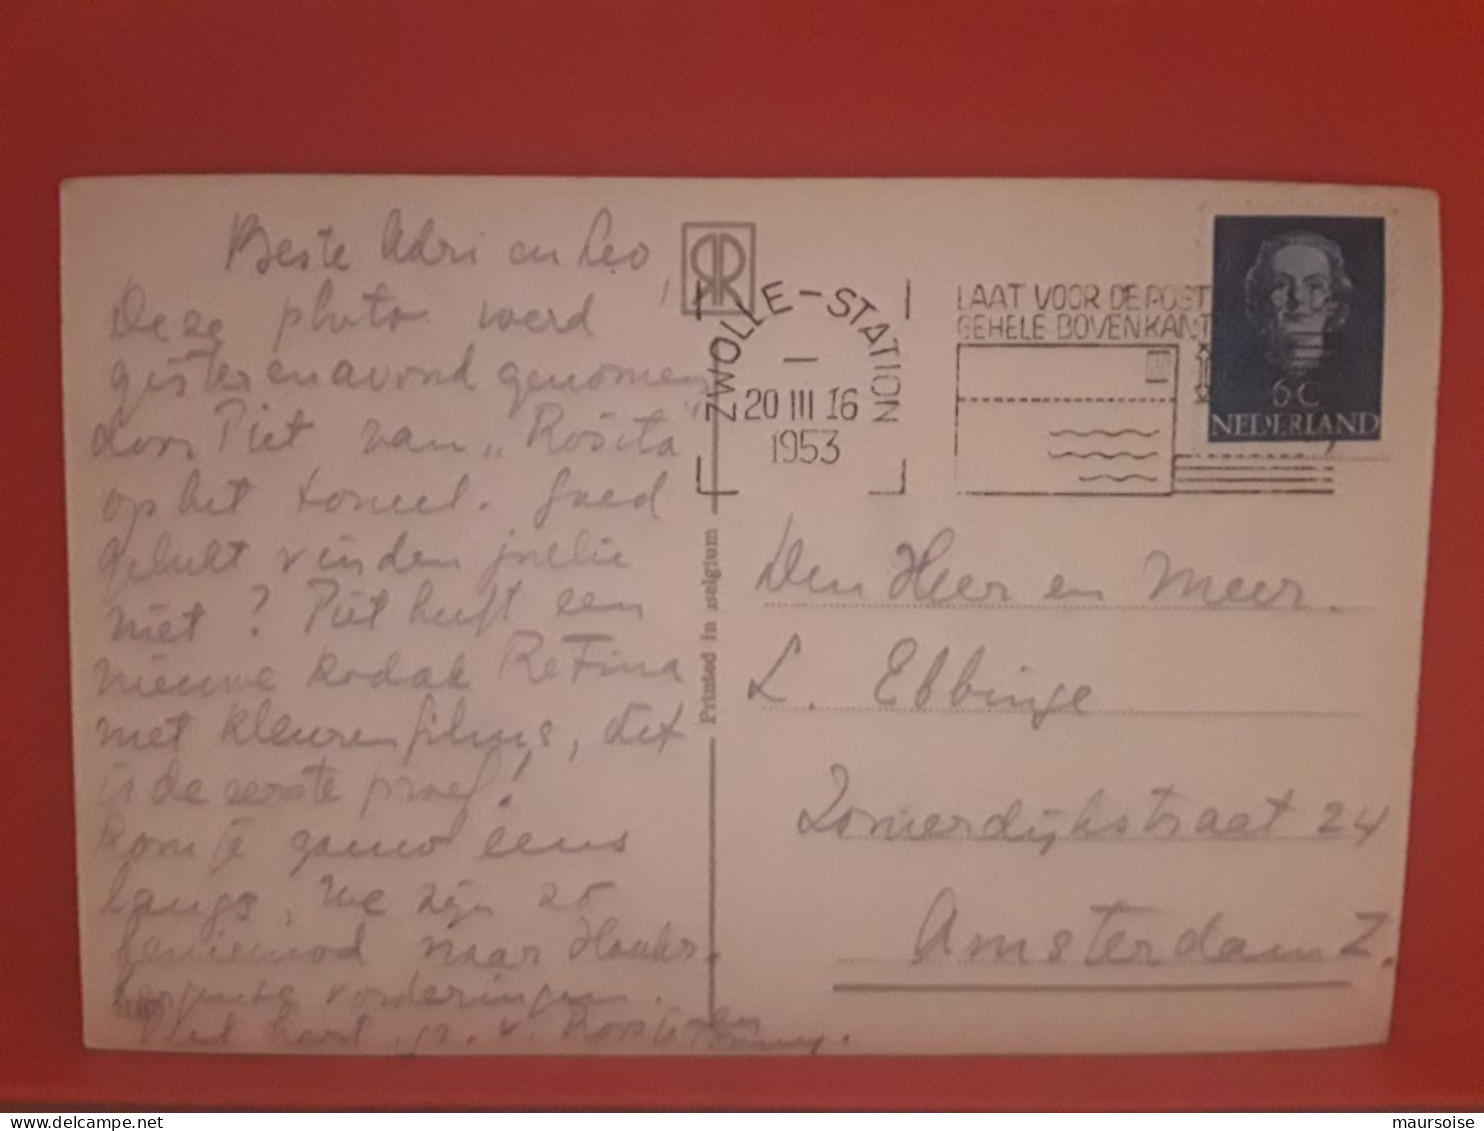 Beste Adri en Leo,
Deze photo werd
gisterenavond genomen
door Piet van „Rosita"
op het toneel. Goed
gelukt vinden jullie
niet? Piet heeft een
nieuwe Kodak Retina
met kleurenfilms, dit
is de eerste proef!
Kom je gauw eens
langs, we zijn zo
benieuwd naar
vorderingen.
RR
ZWOLLE-STATION
20 III 16
1953
LAAT VOOR DE POST
GEHELE BOVENKANT
6C
NEDERLAND
Printed in Belgium
Den Heer en Mevr.
L. Ebbinge
Zomerdijkstraat 24
Amsterdam Z.
www.delcampe.net
maursoise